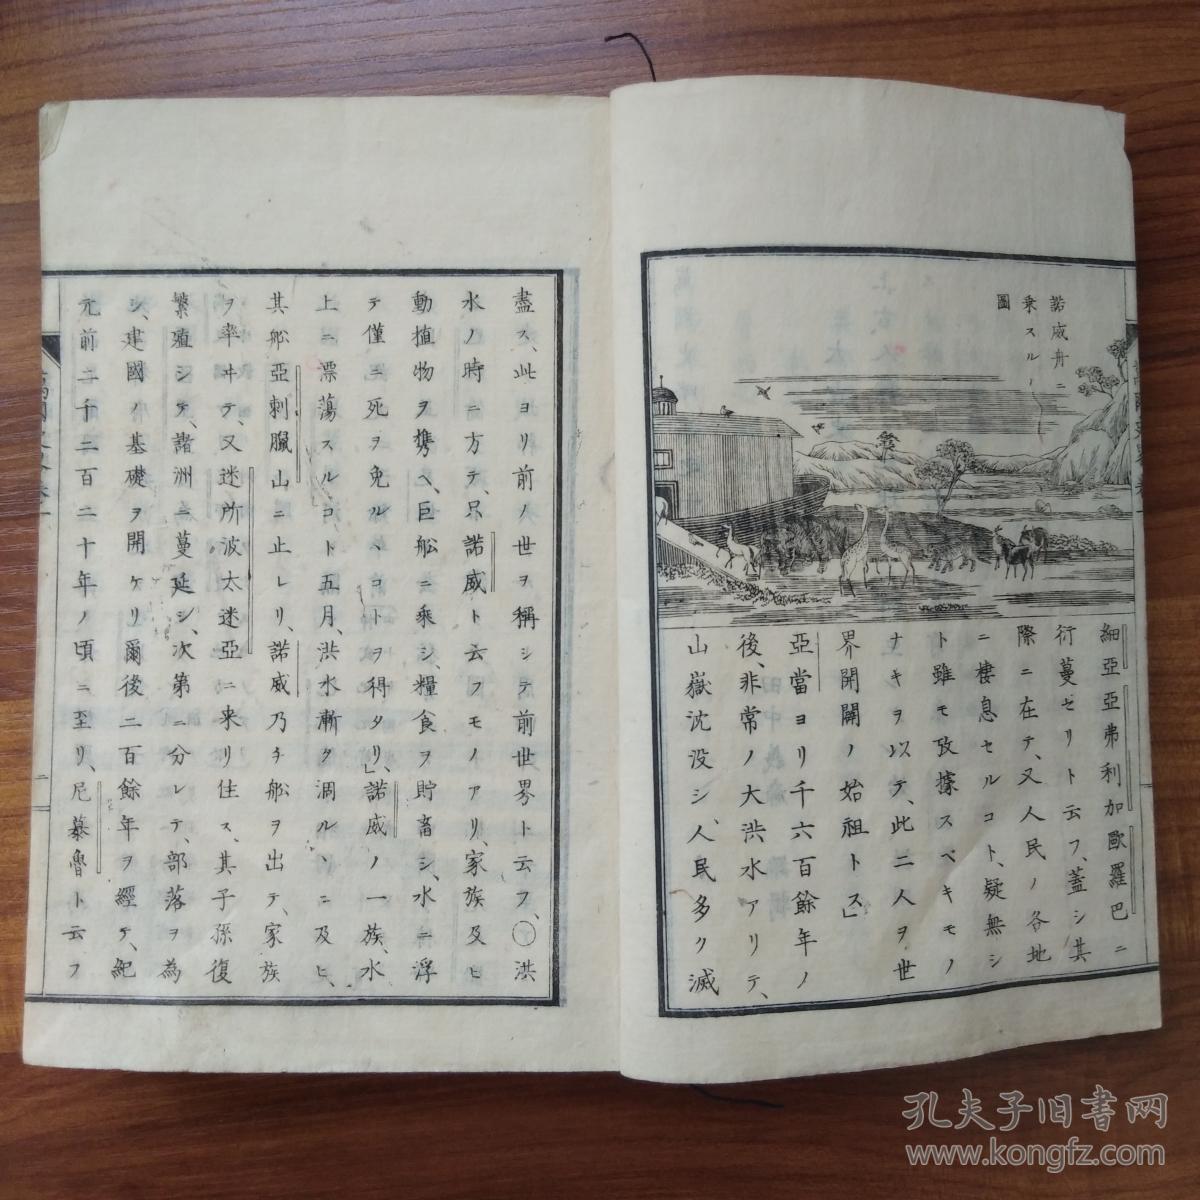 諾威舟ニ
乗スルノ
圖
細亞亞弗利加歐羅巴ニ
衍蔓セリト云フ、蓋シ其
際ニ在テ、又人民ノ各地
ニ棲息セルコト、疑無シ
ト雖モ攷據スベキモノ
ナキヲ以テ、此二人ヲ世
界開闢ノ始祖トス」
亞當ヨリ千六百餘年ノ
後、非常ノ大洪水アリテ、
山嶽沈没シ、人民多ク滅
盡ス、此ヨリ前ノ世ヲ稱シテ前世界ト云フ、〇洪
水ノ時ニ方テ、只諾威ト云フモノアリ、家族及ヒ
動植物ヲ携ヘ、巨船ニ乘シ、糧食ヲ貯畜シ、水ニ浮
テ僅ニ死ヲ免ルヽコトヲ得タリ」諾威ノ一族、水
上ニ漂蕩スルコト五月、洪水漸ク涸ルヽニ及ヒ、
其船亞刺臘山ニ止レリ、諾威乃チ船ヲ出テ、家族
ヲ率ヰテ、又迷所波太迷亞ニ来リ住ス、其子孫復
繁殖シテ、諸洲ニ蔓延シ、次第ニ分レテ、部落ヲ為
シ、建國ノ基礎ヲ開ケリ爾後二百餘年ヲ經テ、紀
元前二千二百二十年ノ頃ニ至リ、尼慕魯ト云フ
二
孔夫子旧书网
www.kongfz.com